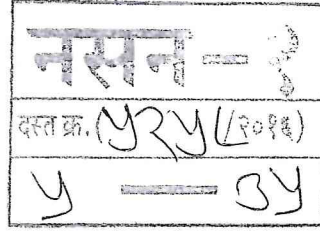 नसन - १
दस्त क्र. (५२५८/२०१६)
५ — ७५